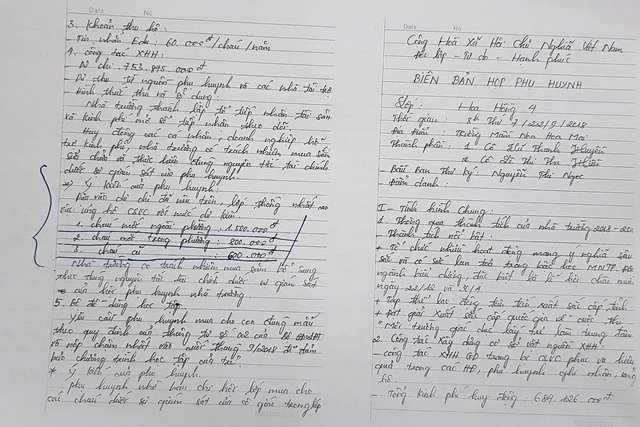 3. Khoản thu hộ:
- Tin nhắn Edu: 60.000đ/cháu/năm
4. Công tác XHH:
- Dự chi: 753.845.000đ
- Dự thu từ nguồn phụ huynh và các nhà tài trợ.
- Hình thức thu và sử dụng
Nhà trường thành lập tổ tiếp nhận tài sản
và kinh phí mở sổ tiếp nhận theo dõi.
Huy động các cá nhân, doanh nghiệp hỗ
trợ kinh phí nhà trường có trách nhiệm mua sắm
sửa chữa và thực hiện đúng nguyên tắc tài chính
dưới sự giám sát của phụ huynh.
* Ý kiến của phụ huynh.
Dựa vào dự chi đã nêu trên, lớp thống nhất cao
các ủng hộ CSVC với mức dự kiến
1. cháu mới ngoài phường: 1.500.000đ
2. cháu mới trong phường: 800.000đ
3. cháu cũ 600.000đ
Nhà trường có trách nhiệm mua sắm bổ sung
thực đúng nguyên tắc tài chính dưới sự giám sát
của hội phụ huynh nhà trường.
5. Về đồ dùng học tập
Yêu cầu phụ huynh mua cho con đúng mẫu
theo quy định của thông tư số 02 của Bộ GD&ĐT
và nộp chậm nhất vào cuối tháng 9/2018 để đảm
bảo chương trình học tập của trẻ.
* Ý kiến của phụ huynh.
phụ huynh nhờ ban chi hội lớp mua cho
các cháu dưới sự giám sát của cô giáo trong lớp
Cộng Hoà Xã Hội Chủ Nghĩa Việt Nam
Độc lập - Tự do - Hạnh phúc
BIÊN BẢN HỌP PHỤ HUYNH
Lớp: Hoa Hồng 4
Thời gian: 8h Thứ 7/22/9/2018
Địa điểm: Trường Mầm Non Hoa Mai
Thành phần: 1. Cô Thanh Huyền
2. Cô Thị Thu Hiền
- Bầu Ban Thư ký: Nguyễn Thị Ngọc
- Điểm danh:
I - Tình hình chung:
1. Thông qua thành tích của nhà trường 2018-20
- Thành tích nổi bật
+ Tổ chức nhiều hoạt động mang ý nghĩa sâu
sắc và có sức lan toả trong bậc học MNTP. Được
ngành đặc biệt là lễ hội chào năm
ngày 22/12 và 30/1
+ Tập thể lao động tiên tiến xuất sắc cấp tỉnh
+ Đạt giải xuất sắc cấp quốc gia về cuộc thi
"Môi trường giáo dục lấy trẻ làm trung tâm.
2. Công tác xây dựng cơ sở vật chất nguồn XHH.
- Công tác XHH GD trang bị CSVC phục vụ hiệu
quả trong các HĐ, phụ huynh ghi nhận, ủng
hộ.
- Tổng kinh phí huy động: 684.126.000đ